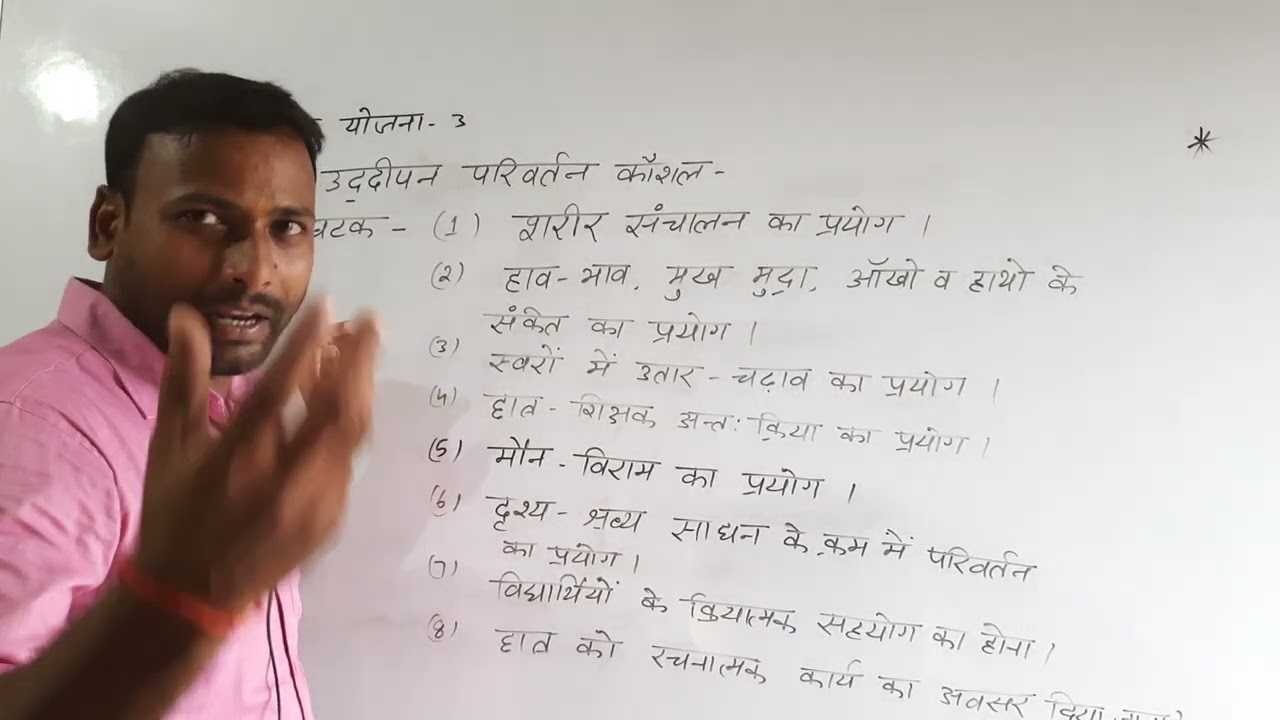 योजना - 3
उद्दीपन परिवर्तन कौशल -
घटक - (1) शरीर संचालन का प्रयोग ।
(2) हाव-भाव, मुख मुद्रा, आँखो व हाथो के
संकेत का प्रयोग ।
(3) स्वरों में उतार - चढ़ाव का प्रयोग ।
(4) छात्र - शिक्षक अन्त: क्रिया का प्रयोग ।
(5) मौन - विराम का प्रयोग ।
(6) दृश्य - श्रव्य साधन के क्रम में परिवर्तन
का प्रयोग ।
(7) विद्यार्थियों के क्रियात्मक सहयोग का होना ।
(8) छात्र को रचनात्मक कार्य का अवसर दिया
*